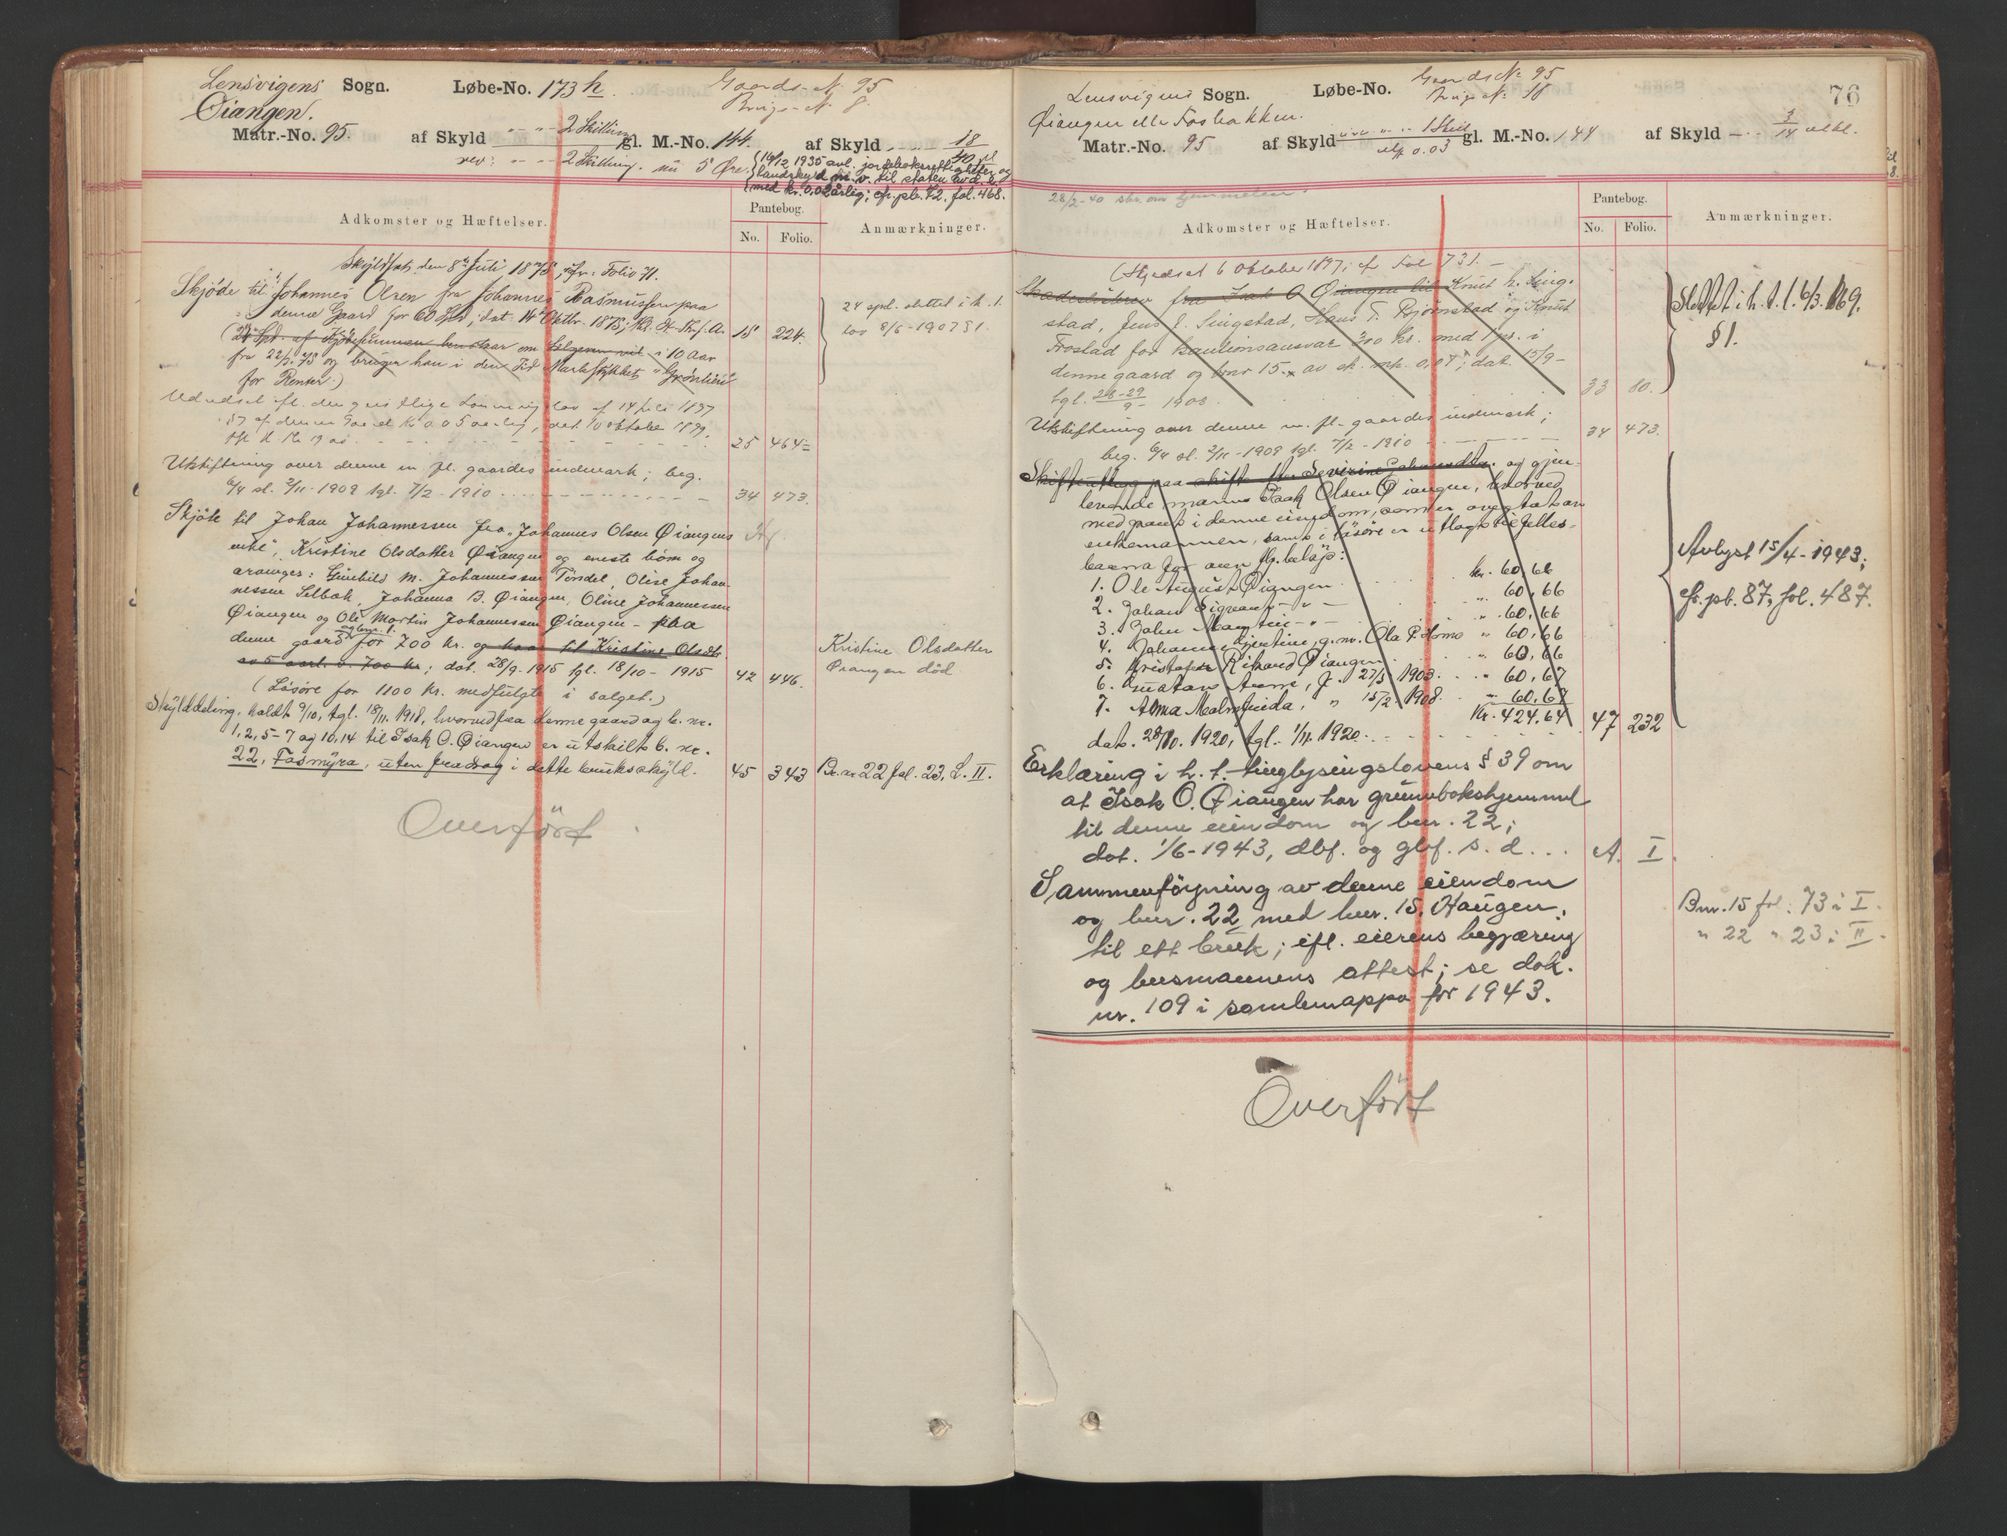 Lensvigens Sogn. Løbe-No. 173 h. Gaards-N. 95
Øiangen. Brugs-N. 8.
Matr.-No. 95. af Skyld " - " - 2 Skilling gl. M.-No. 144. af Skyld 18
rev: " - " - 2 Skilling. nu 5 Øre.
16/12 1935 avl. jordeboksrettigheter og
landskyld m. v. til staten
med kr. 0.02 årlig; cfr. pb. 72, fol. 468.
Adkomster og Hæftelser. Pantebog. Anmærkninger.
No. Folio.
Skyldsat den 8de Juli 1875, cfr: Folio 71.
Skjøde til Johannes Olsen fra Johannes Rasmussen paa
denne Gaard for 60 Spd; dat. 14de Oktbr. 1875; 15 224.
om Sælgeren vil i 10 Aar
fra 22/7 75 og bruger han i den Tid Markstykket "Grønlien"
for Renter.)
24 spd. slettet i h. t.
lov 8/6-1907 § 1.
af 14 juli 1897
§ 7 af denne 0.05 aarlig, dat. 10 oktober 1899.
25 464
Utskiftning over denne m. fl. gaardes indmark; beg.
6/4 sl. 3/11-1909 tgl. 7/2-1910 34 473.
Skjøte til Johan Johannessen fra "Johannes Olsen Øiangens
enke", Kristine Olsdatter Øiangen og eneste børn og
arvinger: Gunhild M. Johannessen Tøndel, Olise Johan-
nessen Selbæk, Johanna B. Øiangen, Oline Johannessen
Øiangen og Ole Martin Johannessen Øiangen - paa
denne gaard og bnr. 1. for 700 kr. og kaar til Kristine Olsdtr.
av 5 aarl. v. 700 kr; dat. 28/9-1915 tgl. 18/10-1915 42 446.
Kristine Olsdatter
Øiangen død
(Løsøre for 1100 kr. medfulgte i salget.)
Skylddeling, holdt 9/10, tgl. 18/11. 1918, hvorved fra denne gaard og b. nr.
1, 2, 5-7 og 10, 14 til Isak O. Øiangen er utskilt b. nr.
22, Fosmyra, uten fradrag i dette bruks skyld. 45 343 Br. nr 22 fol. 23. L. II.
Overført
76
Lensvigens Sogn. Løbe-No. Gaards N. 95
Brugs N. 10
Øiangen eller Fosbakken.
Matr.-No. 95 af Skyld 1 Skill gl. M.-No. 144 af Skyld 3/14
0.03
28/2-40 skr. om hjemmelen
Adkomster og Hæftelser. Pantebog. Anmærkninger.
No. Folio.
(Skyldsat 6 oktober 1897; cf Fol 731.
Skadesløsbrev fra Isak O Øiangen til Knut H. Sing-
stad, Jens E. Singstad, Hans F. Bjørnstad og Knut
Frostad for kautionsansvar 300 kr. med 1 pr. i
denne gaard og bnr 15 av sk. mk. 0,07; dat. 15/9-
tgl. 28-29/9-1908. 33 80.
Slettet i h. t. l. 6/3. 1869.
§ 1.
Utskiftning over denne m. fl. gaardes indmark;
beg. 6/4 sl. 3/11-1909 tgl. 7/2-1910 34 473.
Skifteutlæg paa skift og gjen-
levende mand Isak Olsen Øiangen, hvorved
med pant i denne eiendom, som er overtat av
enkemannen, samt i løsøre er utlagt til felles-
barna for arv flg. beløp:
1. Ole August Øiangen kr. 60,66
2. Johan Sigvart - " - " 60,66
3. John Magnus - " - " 60,66
4. Johanna Gjertine, g. m. Ola P. Homo " 60,66
5. Kristofer Rikard Øiangen " 60,66
6. Gustav Arne, f. 27/3 1903 " 60,67
7. Alma Malmfrida, " 15/2 1908. " 60,67
Kr. 424,64
dat. 28/10. 1920, tgl. 1/11. 1920 47 232
Avlyst 15/4-1943;
cfr. pb. 87, fol. 487.
Erklæring i h. t. tinglysingslovens § 39 om
at Isak O. Øiangen har grunnbokshjemmel
til denne eiendom og bnr. 22;
dat. 1/6-1943, dbf. og gbf. s. d. A. I.
Sammenføyning av denne eiendom
og bnr. 22 med bnr. 15, Haugen,
til ett bruk; ifl. eierens begjæring
og busmannens attest; se dok.
nr. 109 i samlemappa for 1943.
Bnr. 15 fol. 73 i I.
" 22 " 23 i II.
Overført